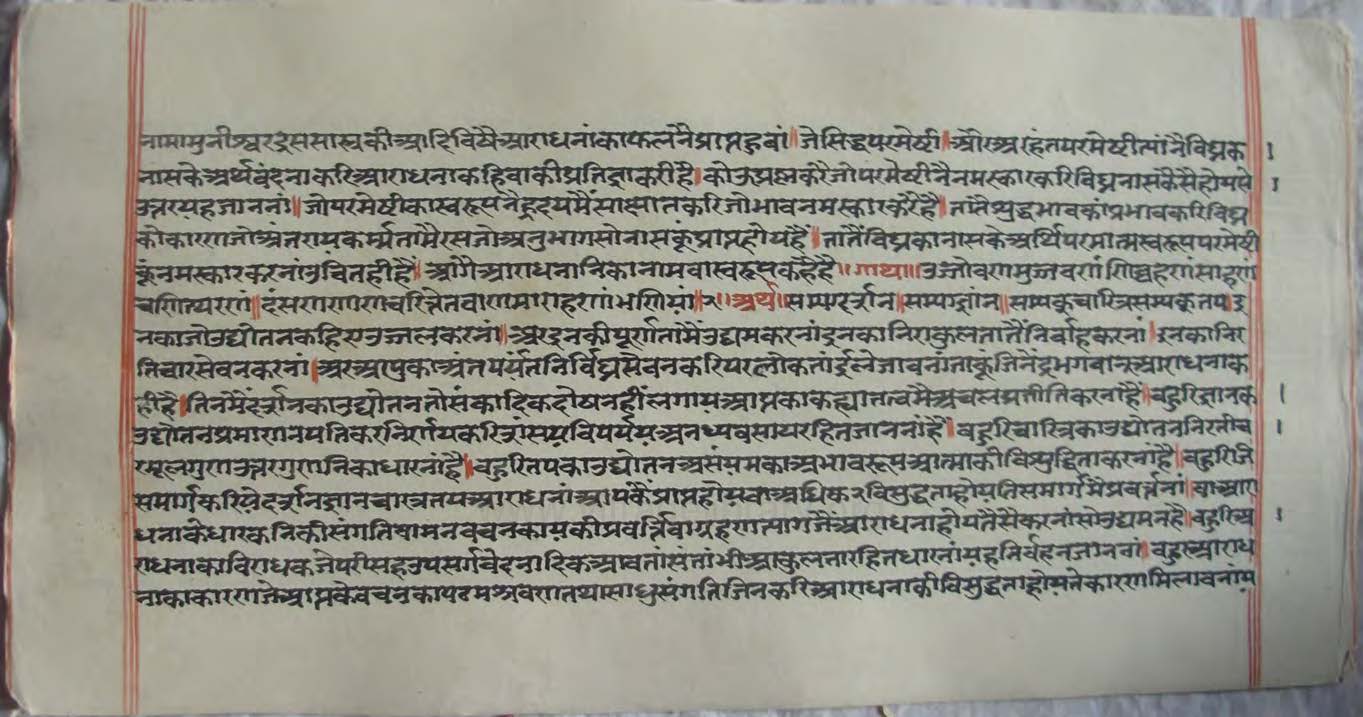 नामामुनीश्वरइससास्त्रकीआदिविषैआराधनांकाफलनैप्राप्तहुवां॥जेसिद्धपरमेष्टी॥औरअरहंतपरमेष्टीत्यांनैविघ्नक
नासकेअर्थवंदनाकरिआराधनाकहिवाकीप्रतिज्ञाकरीहै॥कोऊप्रश्नकरैजोपरमेष्टीनैनमस्कारकरिविघ्ननासकैसैहोयसो
उत्तरयहजाननां॥जोपरमेष्टीकास्वरूपनैहृदयमैंसाक्षातकरिजोभावनमस्कारकरैहै॥तांनैशुद्धभावकांप्रभावकरिविघ्न
कोकारणजोअंतरायकर्म्मतामैरसजोअनुभागसोनासकूंप्राप्तहोयहैं॥तातैंविघ्नकानासकेअर्थिपरमात्मस्वरूपपरमेष्टी
कूंनमस्कारकरनांउचितहीहैं॥आगैआराधनानिकानामवास्वरूपकहैहै॥गाथा॥उज्जोवणमुज्जवणंणिव्वहणंसाहणं
चणित्थरणं॥दंसणणाणचरित्तंतवाणमाराहणांभणियां॥२॥अर्थ॥सम्यग्दर्शन॥सम्यग्ज्ञांन॥सम्यक्चारित्रसम्यक्तप॥इ
नकाजोउद्योतनकहिएउज्जलकरनां॥अरइनकीपूर्णतामैउद्यमकरनांइनकानिराकुलतातैंनिर्वाहकरनां॥इनकानिर
तिचारसेवनकरनां॥अरआपुकाअंतपर्यंतनिर्विघ्नसेवनकरिपरलोकतांईलेजावनांताकूंजिनेंद्रभगवानआराधनाक
हीहै॥तिनमैंदर्शनकाउद्योतनतोसंकादिकदोषनहींलगायआप्तकाकह्यातत्वमैंअचलप्रतीतिकरनांहै॥बहुरिज्ञानक
उद्योतनप्रमाणनयतिकरनिर्णयकरिसंसयविपर्ययअनध्यवसायरहितजाननांहैं॥बहुरिचारित्रकाउद्योतननिरतीच
रमूलगुणउत्तरगुणनिकाधारनांहै॥बहुरितपकाउद्योतनअसंयमकाअभावरूपआत्माकीविशुद्धिताकरनांहै॥बहुरिजि
समार्गकरियेदर्शनज्ञानचारित्रतपआराधनांआपकैंप्राप्तहोयवाअधिकरविसुद्धताहोयतिसमार्गमैंप्रवर्त्तनां॥वाआरा
धनाकेधारकनिकीसंगतिवामनवचनकायकीप्रवर्त्तिवाग्रहणत्यागजैंआराधनाहोयतैसैकरनांसोउद्यमनहै॥बहुरिआ
राधनाकाविराधकजेपरीसहउपसर्गवेदनादिकआवतांसंतांभीआकुलतारहितधारनांयहनिर्वहनजाननां॥बहुरआराध
नाकाकारणजेआप्तकेवचनकापठनश्रवणतथासाधुसंगतिजिनकरिआराधनाकीविसुद्धताहोयतेकारणमिलावनांय